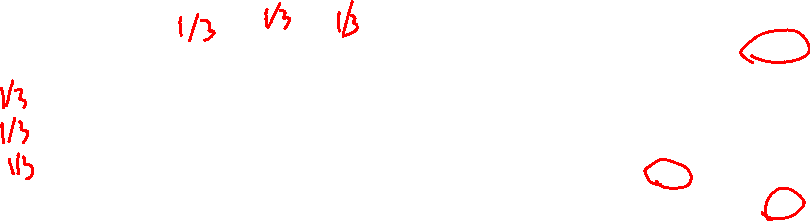 1/3 1/3 1/3
1/3
1/3
1/3